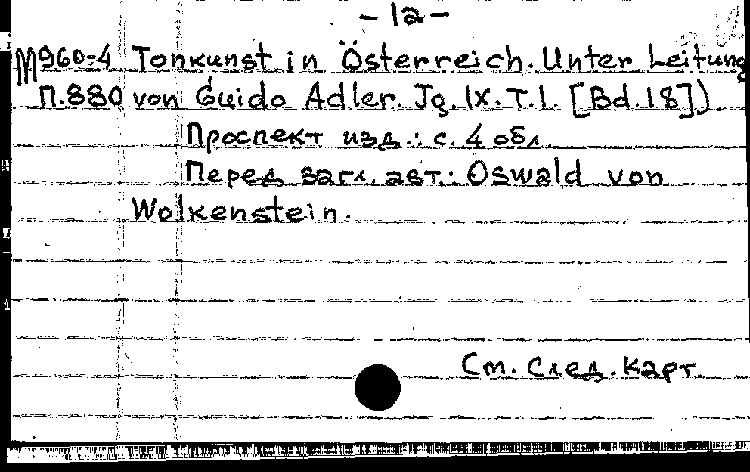 - 1a -
М960-4 Tonkunst in Österreich. Unter Leitung
П.880 von Guido Adler. Jg. IX. T. 1. [Bd. 18])
Проспект изд.: с. 4 обл.
Перед загл. авт.: Oswald von
Wolkenstein.
См. след. карт.